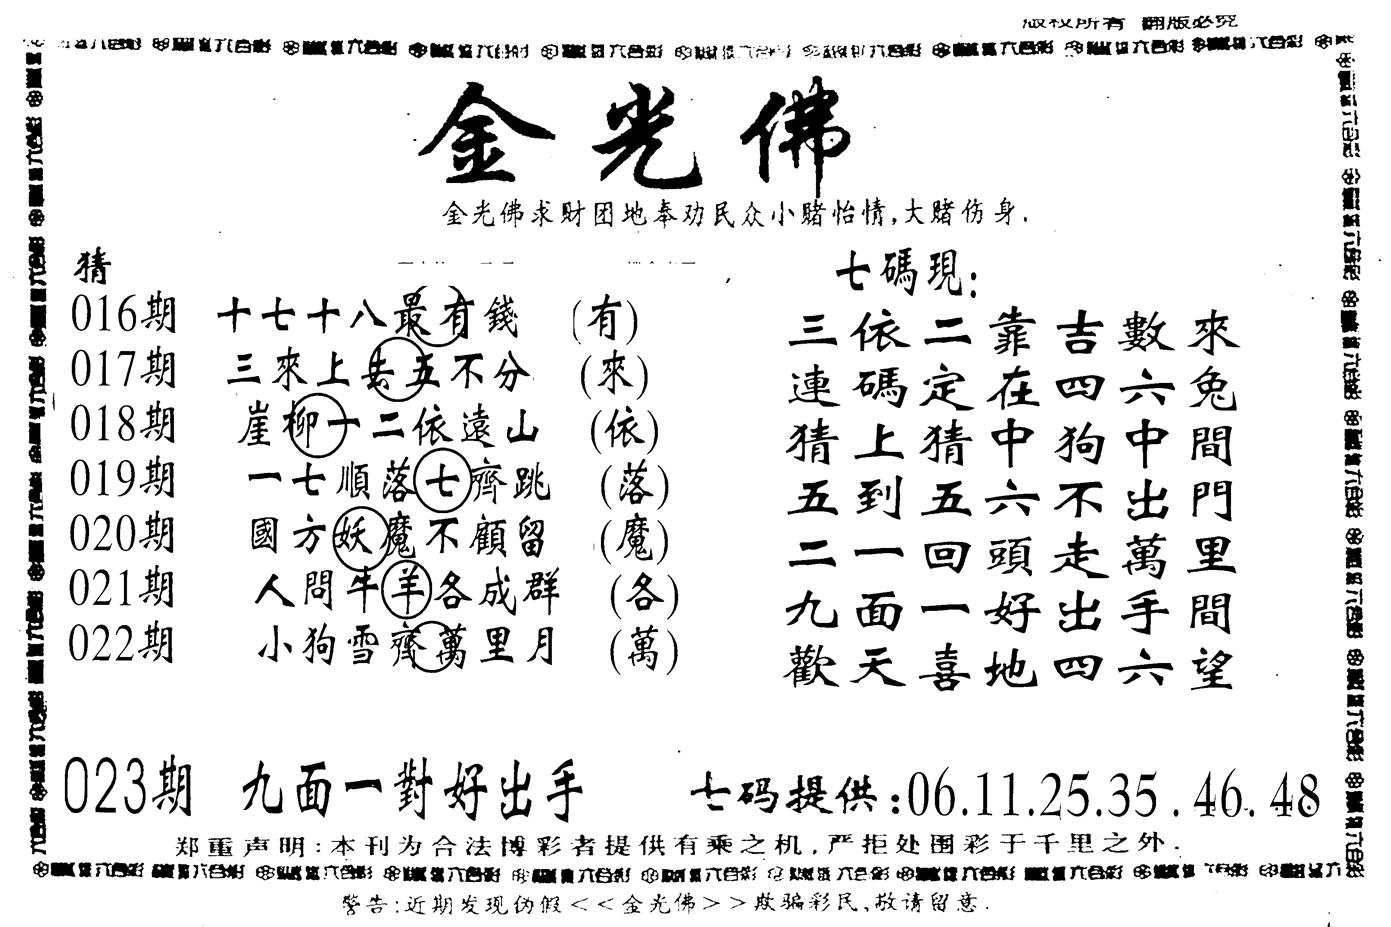 版权所有 翻版必究
金光佛
金光佛求财团地奉劝民众小赌怡情,大赌伤身.
猜
016期 十七十八最有錢 (有)
017期 三來上去五不分 (來)
018期 崖柳十二依遠山 (依)
019期 一七順落七齊跳 (落)
020期 國方妖魔不顧留 (魔)
021期 人問牛羊各成群 (各)
022期 小狗雪齊萬里月 (萬)
七碼現:
三依二靠吉數來
連碼定在四六兔
猜上猜中狗中間
五到五六不出門
二一回頭走萬里
九面一好出手間
歡天喜地四六望
023期 九面一對好出手
七码提供:06.11.25.35.46.48
郑重声明:本刊为合法博彩者提供有乘之机,严拒处围彩于千里之外.
警告:近期发现伪假<<金光佛>>欺骗彩民,敬请留意.